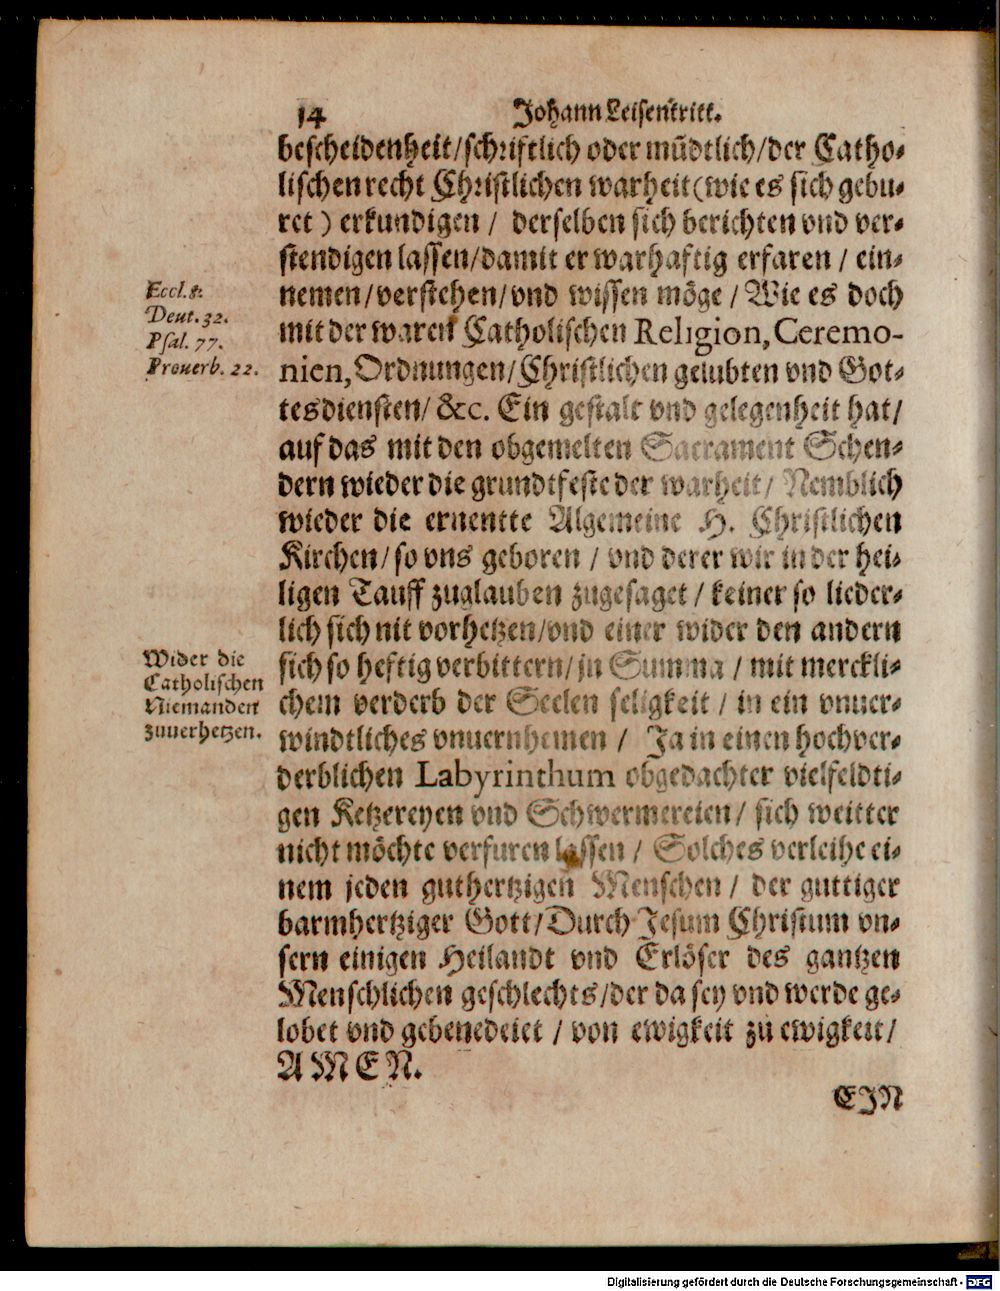 14 Johann Leisentritt.
bescheidenheit/schriftlich oder mūdtlich/der Catho-
lischen recht Christlichen warheit(wie es sich gebu-
ret) erkundigen / derselben sich berichten vnd ver-
stendigen lassen/damit er warhaftig erfaren / ein-
nemen/verstehen/vnd wissen möge / Wie es doch
mit der waren Catholischen Religion, Ceremo-
nien, Ordnungen/Christlichen gelubten vnd Got-
tesdiensten/ &c. Ein gestalt vnd gelegenheit hat/
auf das mit den obgemelten Sacrament Schen-
dern wieder die grundtfeste der warheit/ Nemblich
wieder die ernentte Algemeine H. Christlichen
Kirchen/so vns geboren / vnd derer wir in der hei-
ligen Tauff zuglauben zugesaget / keiner so lieder-
lich sich nit vorhetzen/vnd einer wider den andern
sich so heftig verbittern/jn Summa / mit merckli-
chem verderb der Seelen seligkeit / in ein vnuer-
windtliches vnuernhemen / Ja in einen hochver-
derblichen Labyrinthum obgedachter vielfeldti-
gen Ketzereyen vnd Schwermereien/ sich weitter
nicht möchte verfuren lassen / Solches verleihe ei-
nem jeden guthertzigen Menschen / der guttiger
barmhertziger Gott/Durch Jesum Christum vn-
sern einigen Heilandt vnd Erlöser des gantzen
Menschlichen geschlechts/der da sey vnd werde ge-
lobet vnd gebenedeiet / von ewigkeit zu ewigkeit/
AMEN.
EJN
Eccl. 8.
Deut. 32.
Psal. 77.
Prouerb. 22.
Wider die
Catholischen
Niemanden
zuuerhetzen.
Digitalisierung gefördert durch die Deutsche Forschungsgemeinschaft - DFG